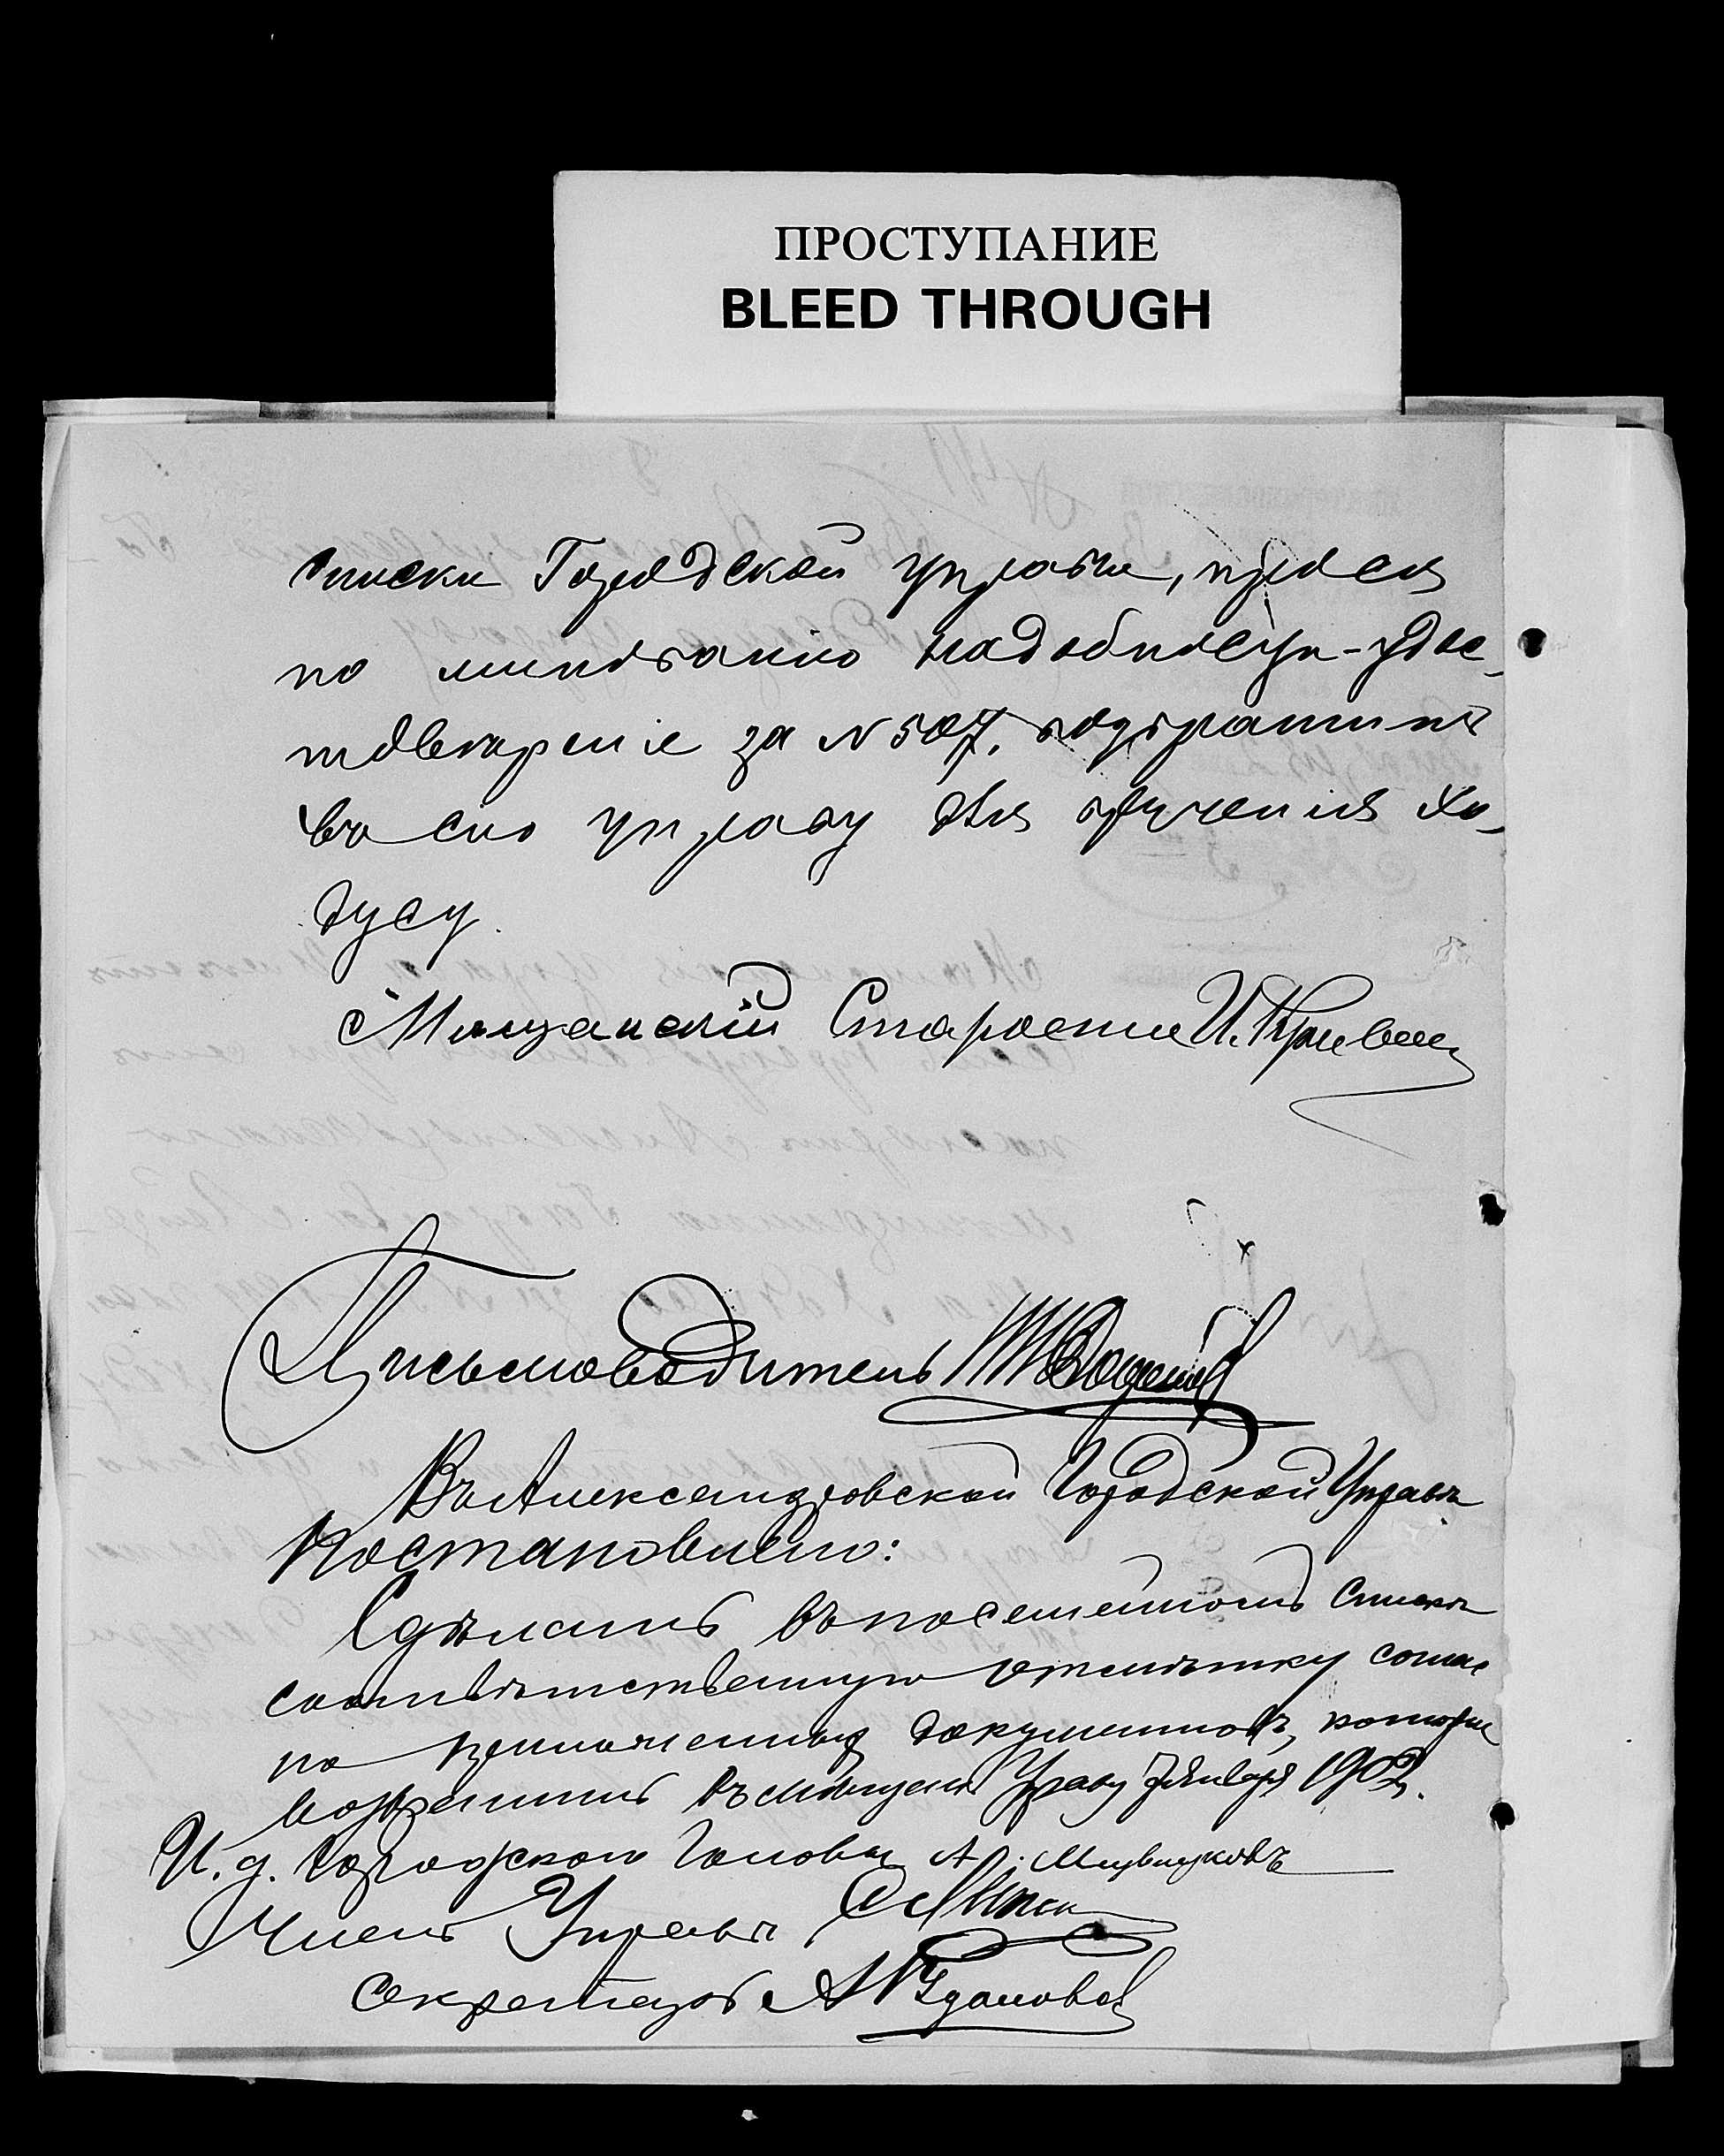 ПРОСТУПАНИЕ
BLEED THROUGH
списки Городской управы, прося
по миновании надобности удос-
товѣреніе за № 507, возвратить
въ сію управу для врученія Хо-
дусу.
Мѣщанскій Староста И.
Письмоводитель
Въ Александровской Городской Управѣ
Постановлено:
Сдѣлать въ посемейномъ спискѣ
соотвѣтственную отмѣтку соглас
но приложенныхъ документовъ, которые
возвратить въ мѣщан. Управу 7 Января 1902 г.
И. д. Городского Головы А.
Членъ Управы
Секретарь А